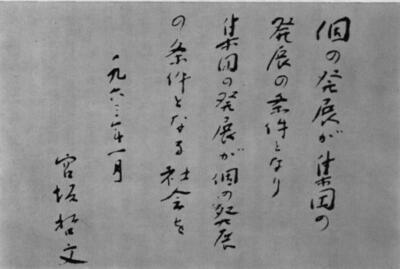 個の発展が集団の
発展の条件となり
集団の発展が個の発展
の条件となる社会を
一九六三年一月
宮坂哲文